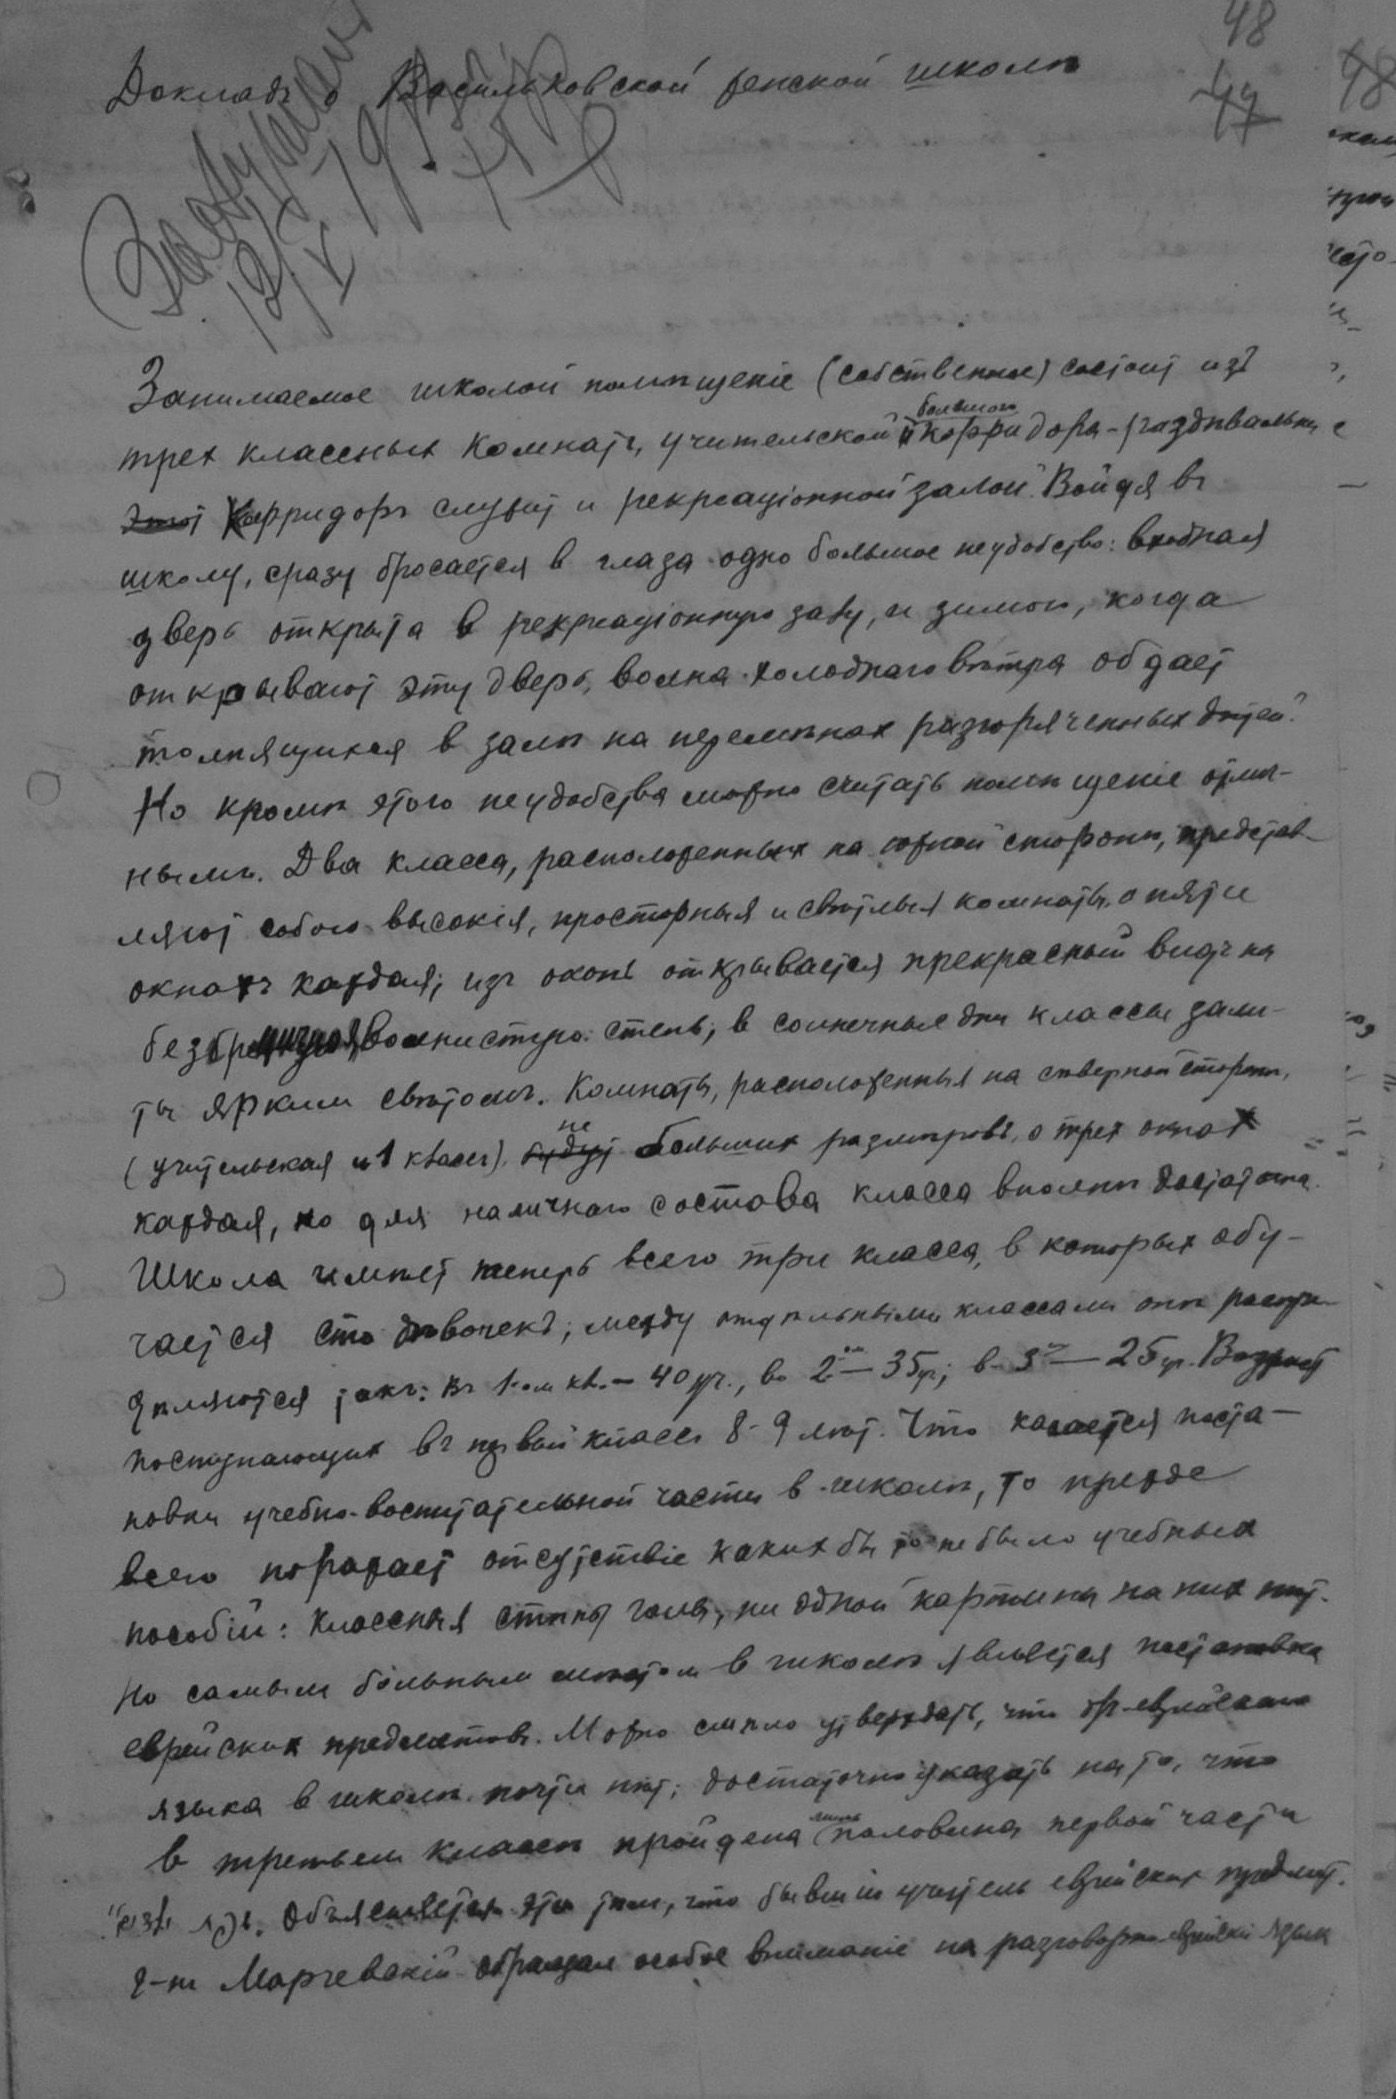 48
47
48
Докладъ о Васильковской женской школѣ
Заслушанъ
19
Занимаемое школой помѣщеніе (собственное) состоит изъ
большого
трех классных комнатъ, учительской и корридора-раздѣвальни
Этот Корридоръ служит и рекреаціонной залой. Войдя въ
школу, сразу бросается в глаза одно большое неудобство: входная
дверь открыта в рекреаціонную залу, и зимою, когда
открывают эту дверь, волна холоднаго вѣтра обдает
толпящихся в залѣ на перемѣнах разгоряченных дѣтей.
Но кромѣ этого неудобства можно считать помѣщеніе отлич-
нымъ. Два класса, расположенных на южной сторонѣ, представ-
ляют собою высокія, просторныя и свѣтлыя комнаты о пяти
окнахъ каждая; изъ оконъ открывается прекрасный видъ на
волнистую степь; в солнечные дни классы зали-
ты ярким свѣтомъ. Комнаты, расположенныя на сѣверной сторонѣ,
не
(учительская и 1 классъ) будут больших размѣровъ, о трех окнах
каждая, но для наличнаго состава класса вполнѣ достаточна.
Школа имѣет теперь всего три класса, в которых обу-
чается сто дѣвочекъ; между отдѣльными классами онѣ распре-
дѣляются такъ: въ 1-ом кл. - 40 уч., во 2-ом - 35 уч.; в 3-ем - 25 уч. Возраст
поступающих въ первый классъ 8-9 лѣт. Что касается поста-
новки учебно-воспитательной части в школѣ, то прежде
всего поражает отсутствіе каких бы то ни было учебных
пособій: классныя стѣны голы, ни одной картины на них нѣт.
Но самым больным мѣстом в школѣ является постановка
еврейских предметовъ. Можно смѣло утверждать, что др.-еврейскаго
языка в школѣ почти нѣт; достаточно указать на то, что
лишь
в третьем классѣ пройдена половина первой части
Объясняется это тѣм, что бывшій учитель еврейских предмет.
г-н Марчевскій обращал особое вниманіе на разговорно-еврейскій язык